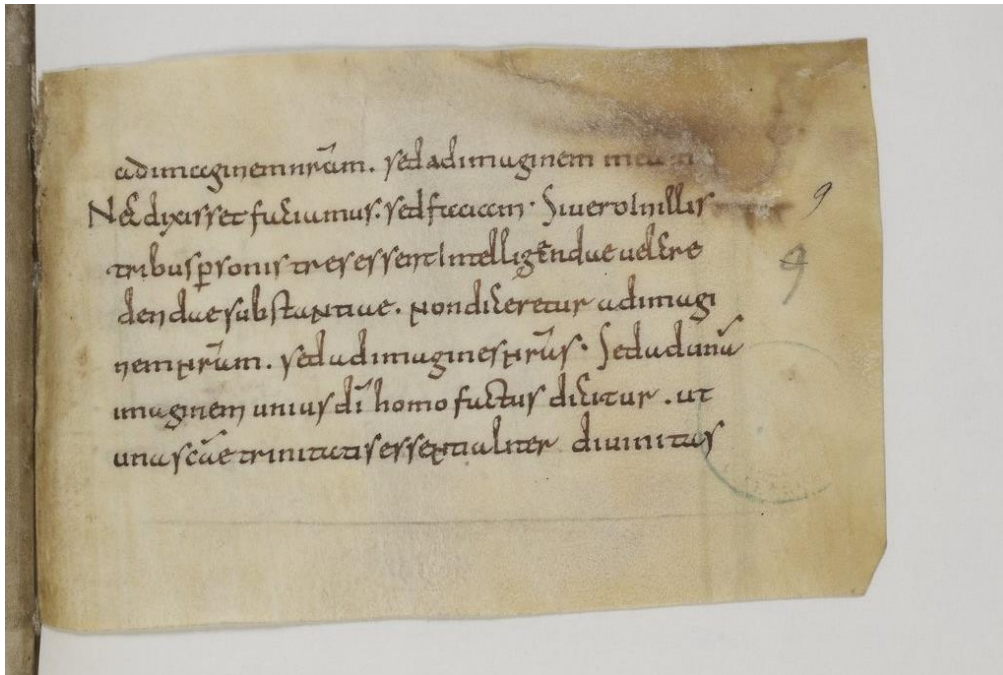 ad imaginem nr̄am. sed ad imaginem meam
Nec dixisset faciamus. sed faciam. Si vero In illis
tribus ꝑsonis tres essent Intelligendae vel cre
dendae substantiae. non diceretur ad imagi
nem nr̄am. sed ad imagines nr̄as. Sed ad unā
imaginem unius dī homo factus dicitur. ut
una scāe trinitatis essentialiter divinitas
9
9